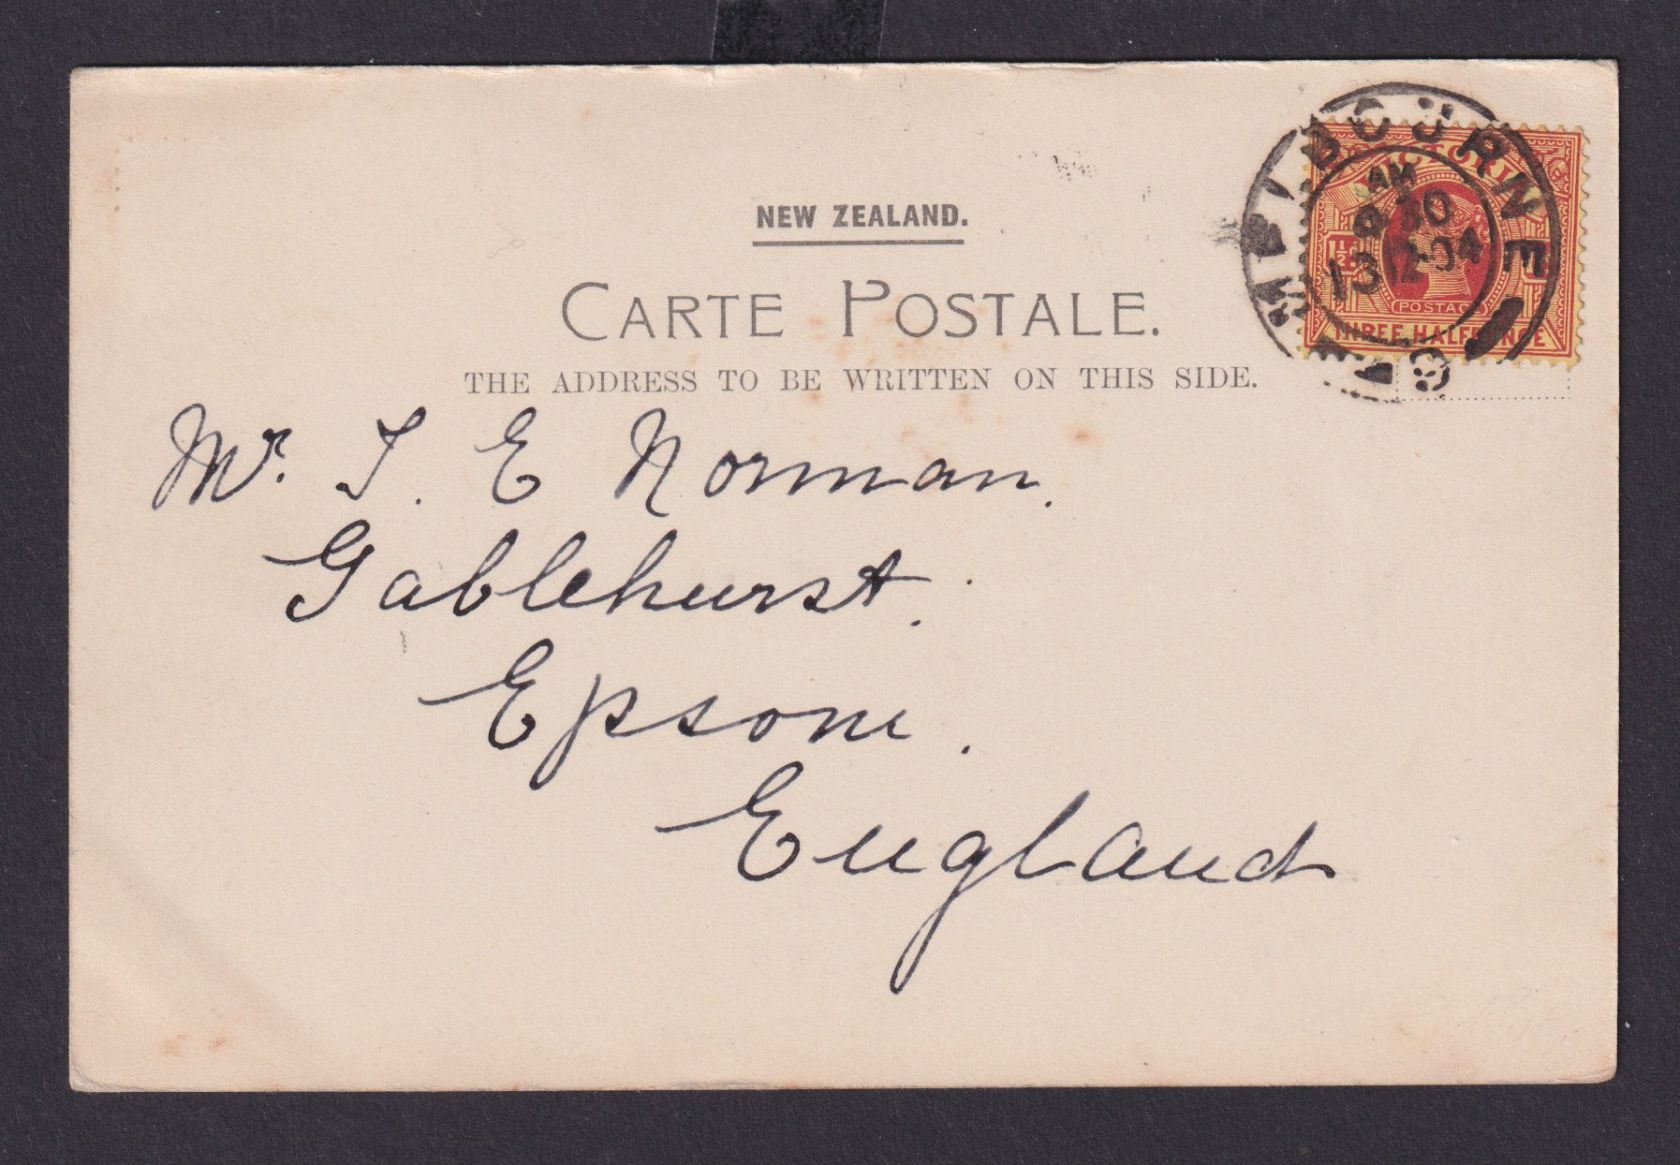 NEW ZEALAND.
CARTE POSTALE.
THE ADDRESS TO BE WRITTEN ON THIS SIDE.
MELBOURNE
AM
30
13 12-04
VICTORIA
1½
POSTAGE
THREE HALFPENCE
Mr. J. E Norman.
Gablehurst.
Epsom.
England